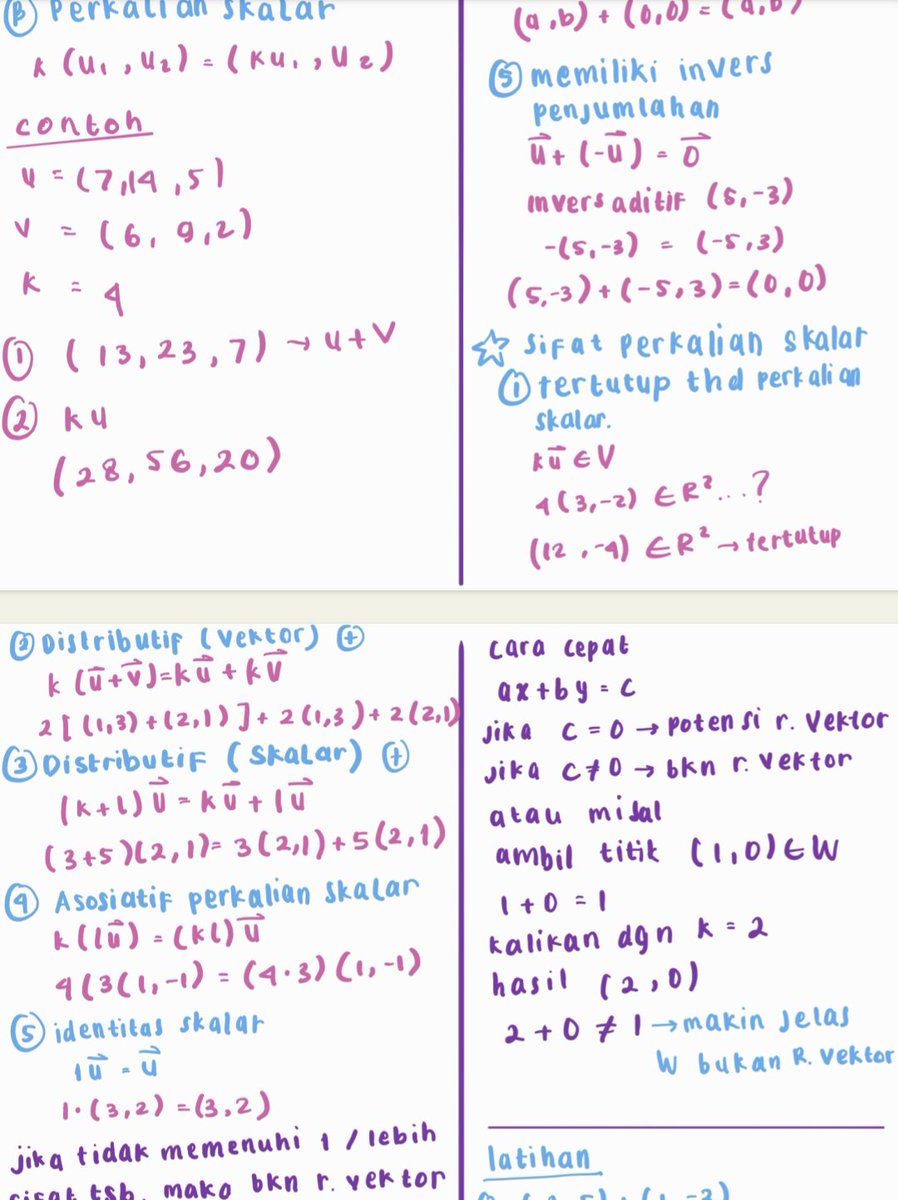 (B) Perkalian skalar
k (u₁ , u₂) = (ku₁ , u₂)
contoh
u = (7,14 ,5)
v = (6, 9,2)
k = 4
① (13, 23 ,7) → u+v
② ku
(28, 56,20)
(a ,b) + (0,0) = (a,b)
⑤ memiliki invers
penjumlahan
u⃗ + (-u⃗) = 0⃗
invers aditif (5,-3)
-(5,-3) = (-5,3)
(5,-3)+(-5,3)=(0,0)
☆ Sifat perkalian skalar
① tertutup thd perkalian
skalar.
ku⃗ ∈ V
4(3,-2) ∈ R² ...?
(12 ,-4) ∈ R² → tertutup
② Distributif (vektor) ⊕
k (u⃗+v⃗)=ku⃗ + kv⃗
2[(1,3)+(2,1)]+ 2(1,3)+ 2(2,1)
③ Distributif (skalar) ⊕
(k+l)u⃗ = ku⃗ + lu⃗
(3+5)(2,1)= 3(2,1)+5(2,1)
④ Asosiatif perkalian skalar
k(lu⃗) = (kl)u⃗
4(3(1,-1) = (4·3)(1,-1)
⑤ identitas skalar
1u⃗ = u⃗
1·(3,2) =(3,2)
jika tidak memenuhi 1 / lebih
sifat tsb, maka bkn r. vektor
cara cepat
ax+by = c
jika c = 0 → potensi r. vektor
jika c≠0 → bkn r. vektor
atau misal
ambil titik (1,0)∈W
1+0 = 1
kalikan dgn k = 2
hasil (2,0)
2+0 ≠ 1 → makin jelas
W bukan R. vektor
latihan